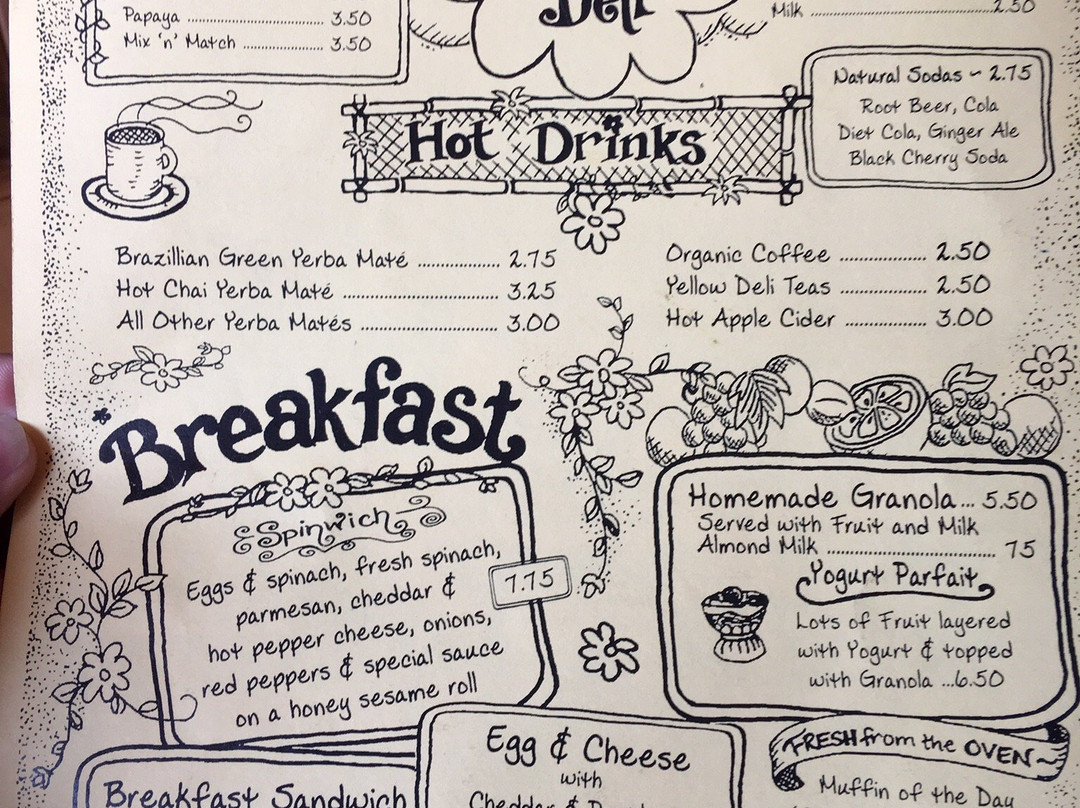 Papaya ........................ 3.50
Mix 'n' Match ................ 3.50
Deli
Milk ........................................ 2.50
Natural Sodas ~ 2.75
Root Beer, Cola
Diet Cola, Ginger Ale
Black Cherry Soda
Hot Drinks
Brazillian Green Yerba Maté ................ 2.75
Hot Chai Yerba Maté ............................... 3.25
All Other Yerba Matés ........................... 3.00
Organic Coffee ................. 2.50
Yellow Deli Teas ................. 2.50
Hot Apple Cider ................ 3.00
Breakfast
Spinwich
Eggs & spinach, fresh spinach,
parmesan, cheddar &
hot pepper cheese, onions,
red peppers & special sauce
on a honey sesame roll
7.75
Homemade Granola... 5.50
Served with Fruit and Milk
Almond Milk ................................... 75
Yogurt Parfait
Lots of Fruit layered
with Yogurt & topped
with Granola ...6.50
Breakfast Sandwich
Egg & Cheese
with
Cheddar &
FRESH from the OVEN~
Muffin of the Day